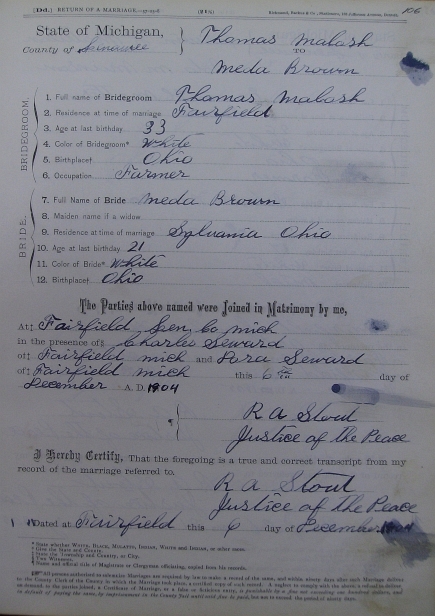 [Dd.] RETURN OF A MARRIAGE
106
State of Michigan,
County of Lenawee
Thomas Malash
TO
Meda Brown
BRIDEGROOM.
1. Full name of Bridegroom Thomas Malash
2. Residence at time of marriage Fairfield
3. Age at last birthday 33
4. Color of Bridegroom* White
5. Birthplace† Ohio
6. Occupation Farmer
BRIDE.
7. Full Name of Bride Meda Brown
8. Maiden name if a widow
9. Residence at time of marriage Sylvania Ohio
10. Age at last birthday 21
11. Color of Bride* White
12. Birthplace† Ohio
The Parties above named were Joined in Matrimony by me,
At‡ Fairfield Len Co Mich
in the presence of§ Charles Seward
of‡ Fairfield Mich and Dora Seward
of‡ Fairfield Mich this 6th day of
December A. D. 1904
R A Stout
Justice of the Peace
I Hereby Certify, That the foregoing is a true and correct transcript from my
record of the marriage referred to.
R A Stout
Justice of the Peace
Dated at Fairfield this 6 day of December 1904
* State whether WHITE, BLACK, MULATTO, INDIAN, WHITE and INDIAN, or other races.
† Give the State and County.
‡ State the Township and County, or City.
§ Two Witnesses.
¶ Name and official title of Magistrate or Clergyman officiating, copied from his records.